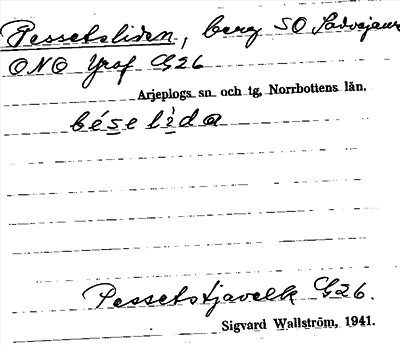 Pessetsliden, berg SO Sadvajaure
ONO Graf G26
Arjeplogs sn och tg, Norrbottens län.
bése lìda
Pessetstjavelk G26.
Sigvard Wallström, 1941.